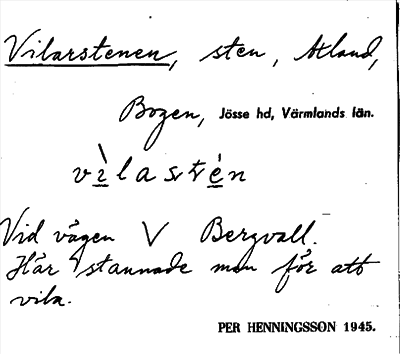 Vilarstenen, sten, Utland,
Bogen, Jösse hd, Värmlands län.
vìlastén
Vid vägen V Bergvall.
Här stannade man för att
vila.
PER HENNINGSSON 1945.